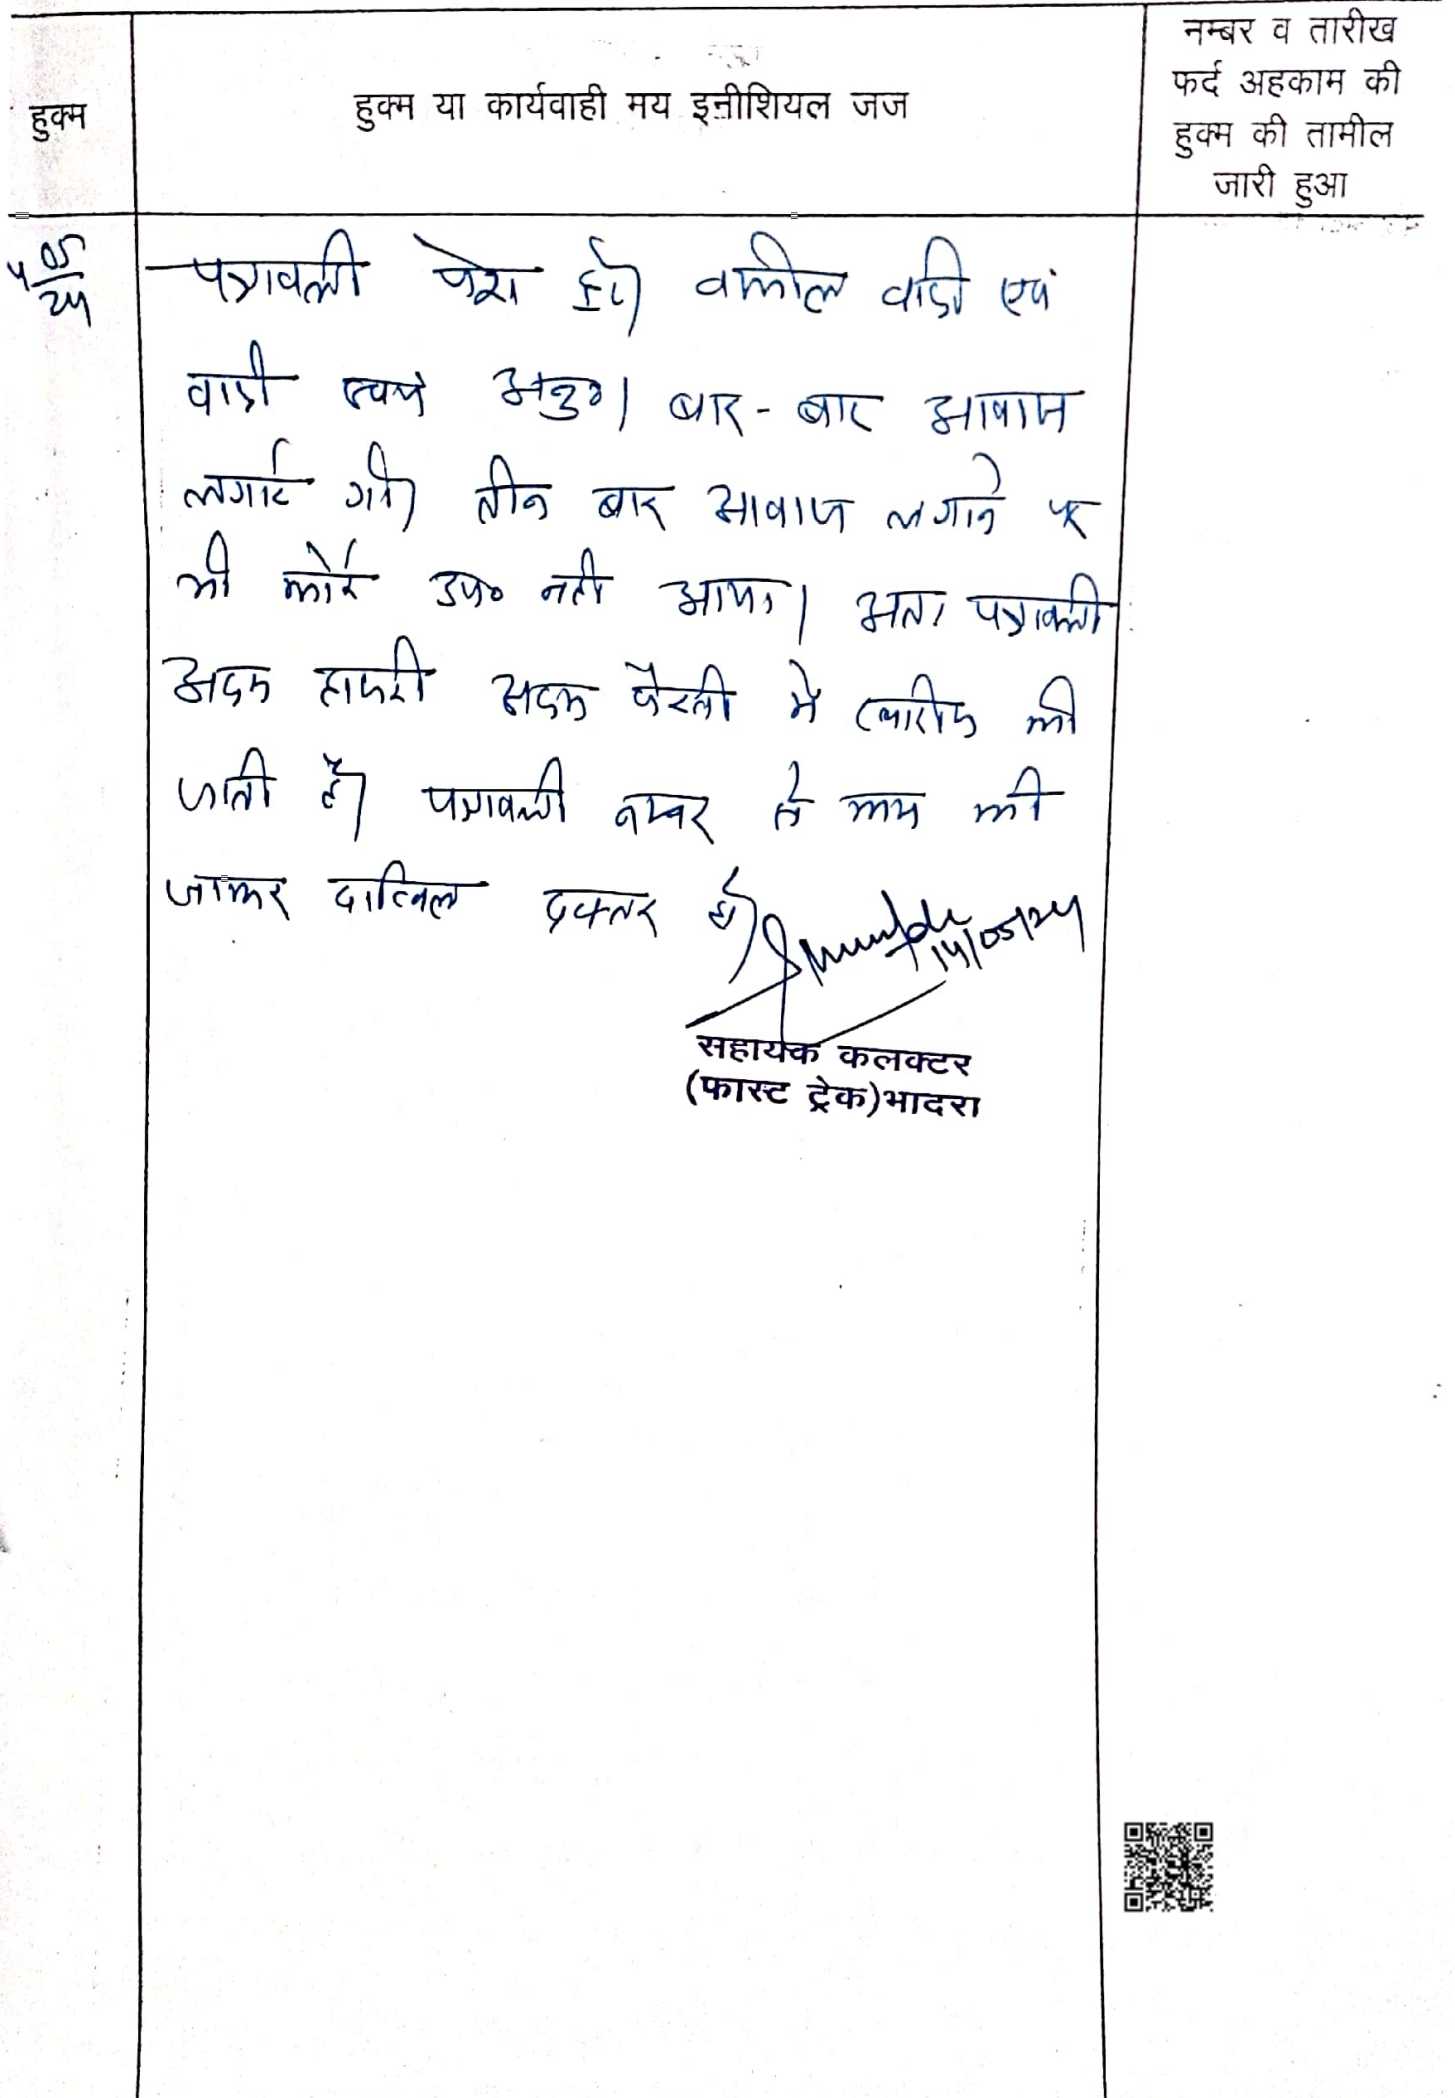 हुक्म
हुक्म या कार्यवाही मय इनीशियल जज
नम्बर व तारीख
फर्द अहकाम की
हुक्म की तामील
जारी हुआ
05
24
पत्रावली पेश हुई। वकील वादी एवं
वादी स्वयं अनु०। बार-बार आवाज
लगाई गयी। तीन बार आवाज लगाने पर
भी कोई उप० नही आया। अतः पत्रावली
अदम हाजरी अदम पैरवी में खारीज की
जाती है। पत्रावली नम्बर से कम की
जाकर दाखिल दफ्तर हो।
14/05/24
सहायक कलक्टर
(फास्ट ट्रेक)भादरा